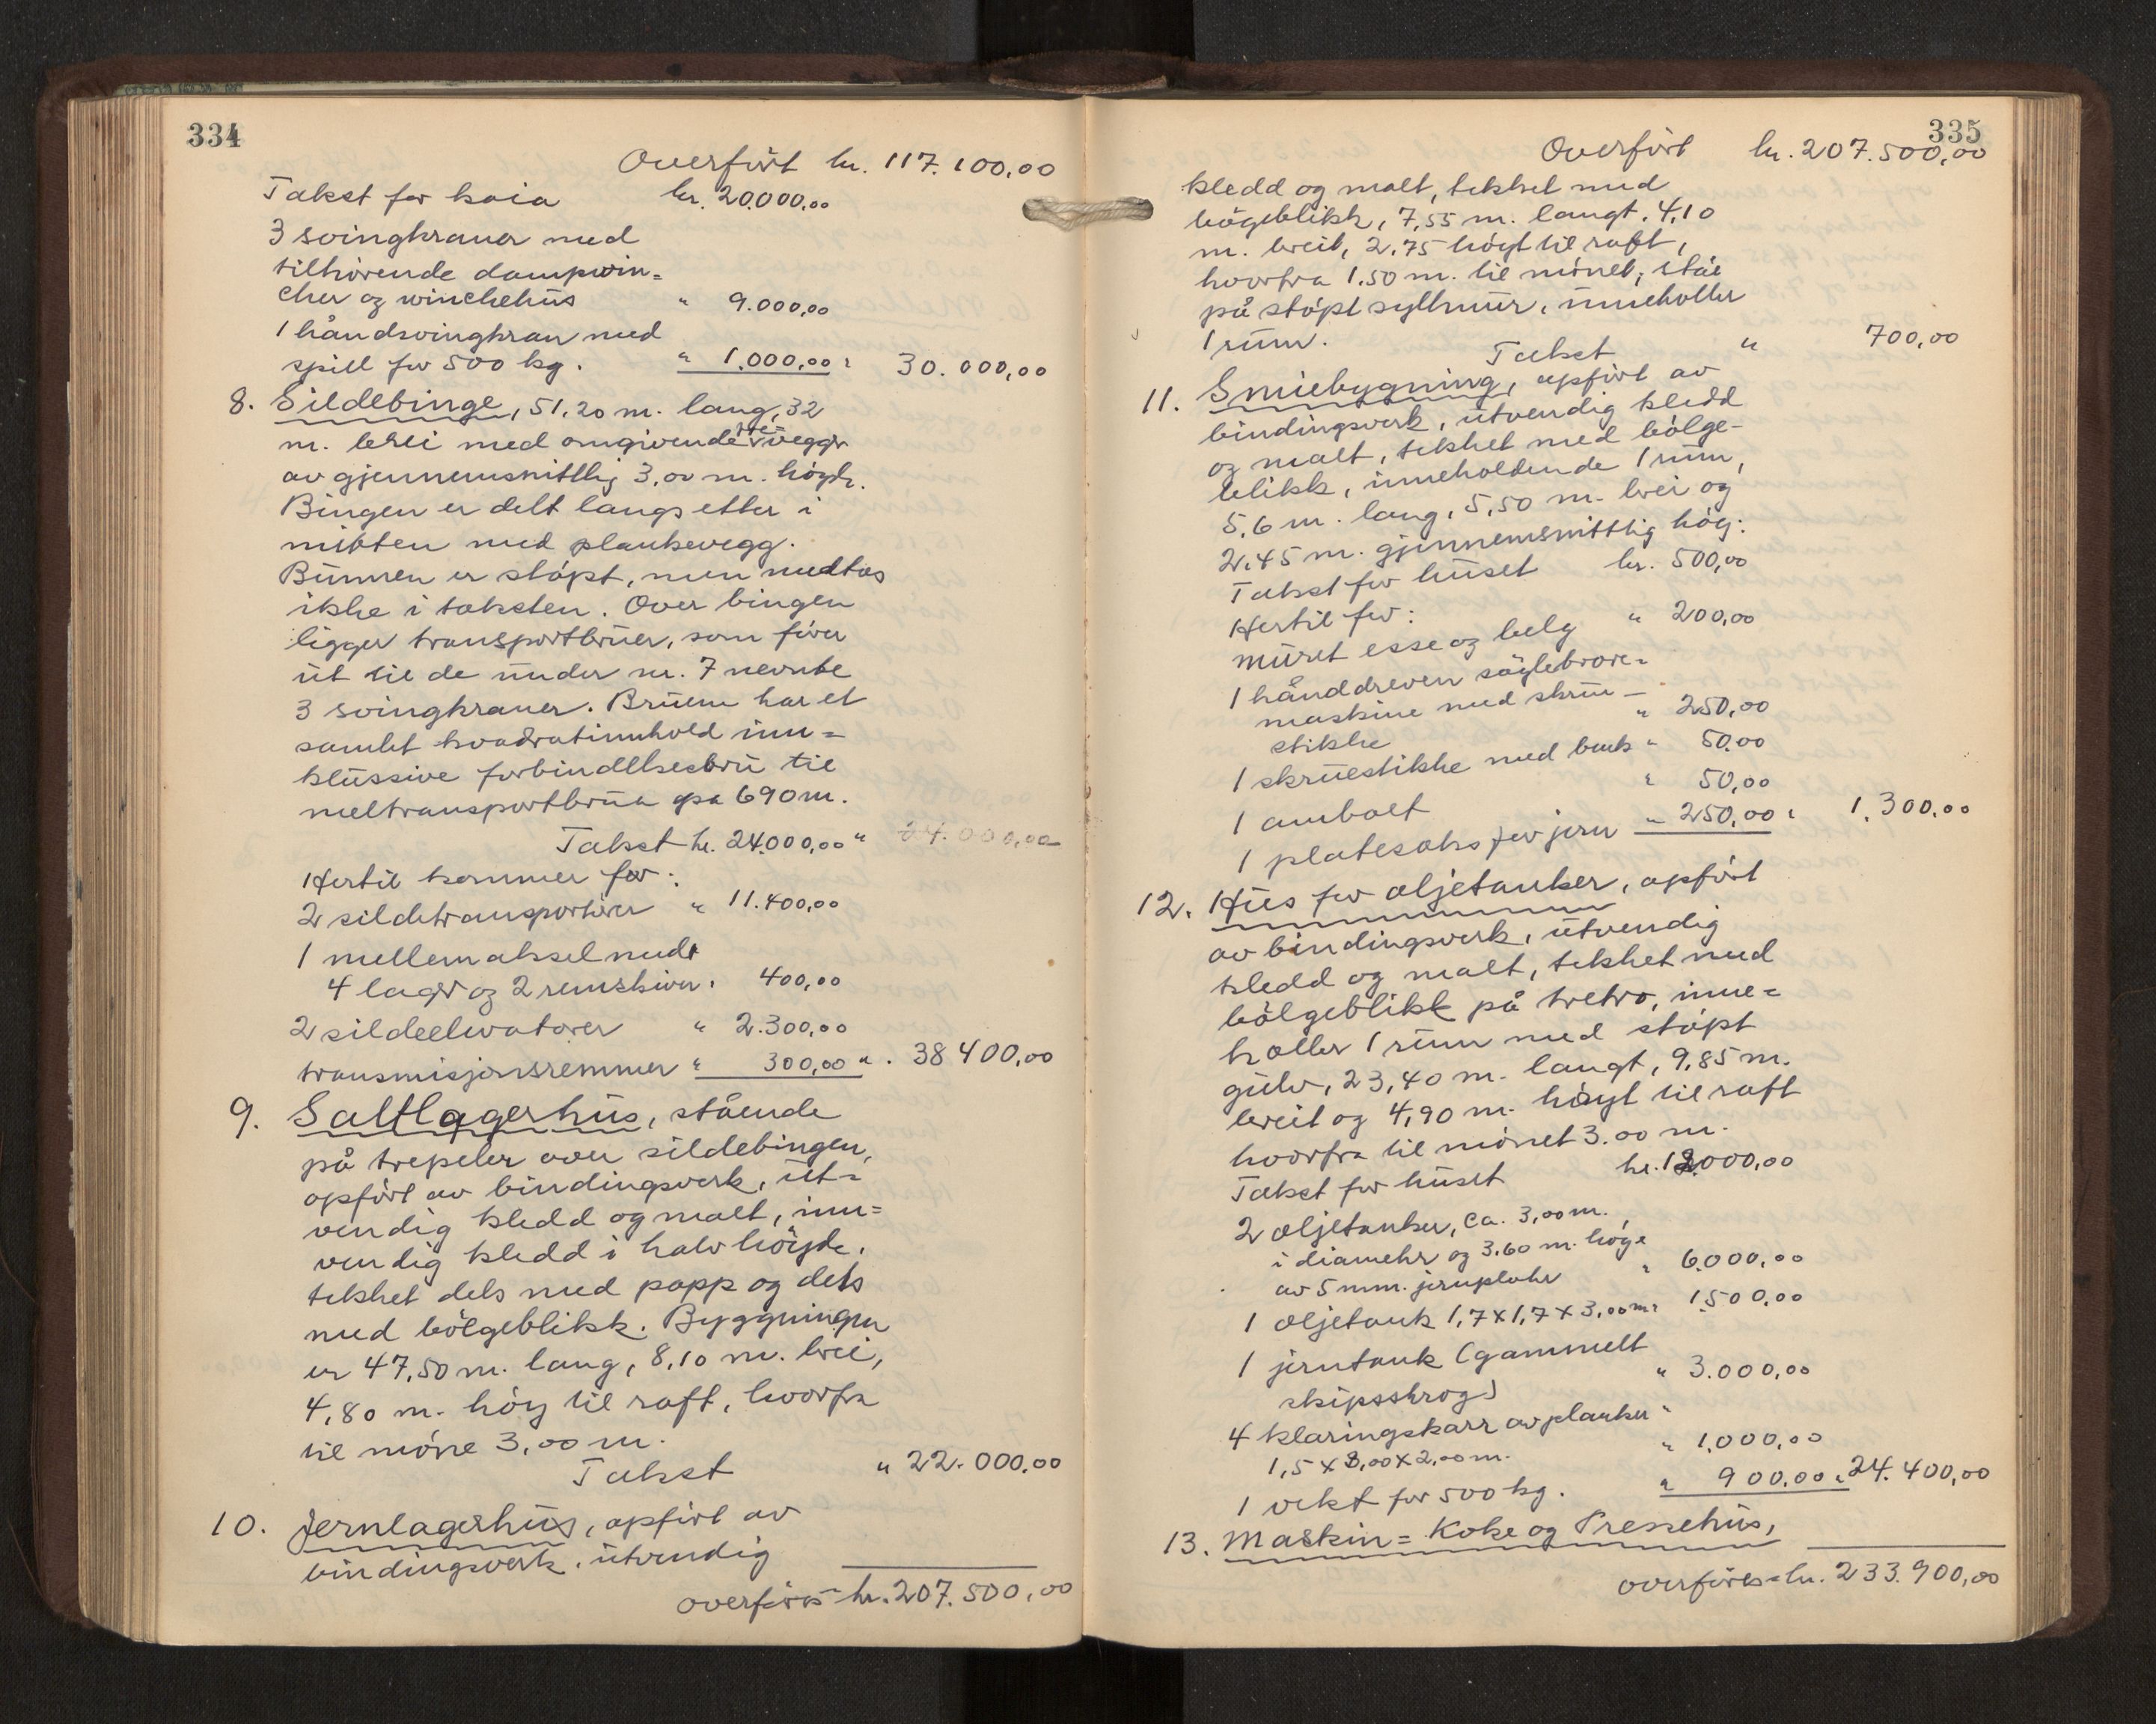 334
Overfört kr. 117.100,00
Takst for kaia kr. 20.000,00
3 svingkraner med
tilhörende dampwin=
cher og winchehus " 9.000,00
1 håndsvingkran med
spill for 500 kg. " 1.000,00 " 30.000,00
8. Sildebinge, 51,20 m. lang, 32
m. brei med omgivende tre-vegger
av gjennemsnittlig 3,00 m. högde.
Bingen er delt langs etter i
midten med plankevegg.
Bunnen er stöpt, men medtas
ikke i taksten. Over bingen
ligger transportbruer, som förer
ut til de under nr. 7 nevnte
3 svingkraner. Bruene har et
samlet kvadratinnhold inn=
klussive forbindelsesbru til
meltransportbrua på 690 m.
Takst kr. 24.000,00 " 24.000,00
Hertil kommer for:
2 sildetransportörer " 11.400,00
1 mellemaksel med
4 lager og 2 remskiver " 400,00
2 sildeelevatorer " 2.300,00
transmisjonsremmer " 300,00 " 38400,00
9. Saltlagerhus, stående
på trepeler over sildebingen,
opfört av bindingsverk, ut=
vendig kledd og malt, inn=
vendig kledd i halv höyde.
tekket dels med papp og dels
med bölgeblikk. Byggningen
er 47,50 m. lang, 8,10 m. brei,
4,80 m. höy til raft, hvorfra
til möne 3,00 m.
Takst " 22.000,00
10. Jernlagerhus, opfört av
bindingsverk, utvendig
overföres kr. 207.500,00
335
Overfört kr. 207.500,00
kledd og malt, tekket med
bögeblikk, 7,55 m. langt, 4,10
m. breit, 2,75 höyt til raft,
hvorfra 1.50 m. til mönet, står
på stöpt syllmur, inneholler
1 rum.
Takst " 700,00
11. Smiebygning, opfört av
bindingsverk, utvendig kledd
og malt, tekket med bölge-
blikk, inneholdende 1 rum,
5,6 m. lang, 5,50 m. brei og
2,45 m. gjennemsnittlig höy:
Takst for huset kr. 500,00
Hertil for:
muret esse og belg " 200,00
1 hånddreven söylebore=
maskine med skru-
stikke " 250,00
1 skruestikke med benk " 50,00
1 ambolt " 50,00
1 platesaks for jern " 250,00 " 1.300,00
12. Hus for oljetanker, opfört
av bindingsverk, utvendig
kledd og malt, tekket med
bölgeblikk på tretro, inne=
holler 1 rum med stöpt
gulv, 23,40 m. langt, 9,85 m.
breit og 4,90 m. höyt til raft
hvorfra til mönet 3.00 m.
Takst for huset kr. 12.000,00
2 oljetanker, ca. 3,00 m.
i diameter og 3.60 m. höge
av 5 mm. jernplater " 6.000,00
1 oljetank 1,7 x 1,7 x 3,00 m " 1.500,00
1 jerntank (gammelt
skipsskrog) " 3.000,00
4 klaringskarr av planker
1,5 x 3,00 x 2,00 m. " 1.000,00
1 vekt for 500 kg. " 900,00 " 24.400,00
13. Maskin= Koke og Pressehus,
overföres kr. 233.900,00